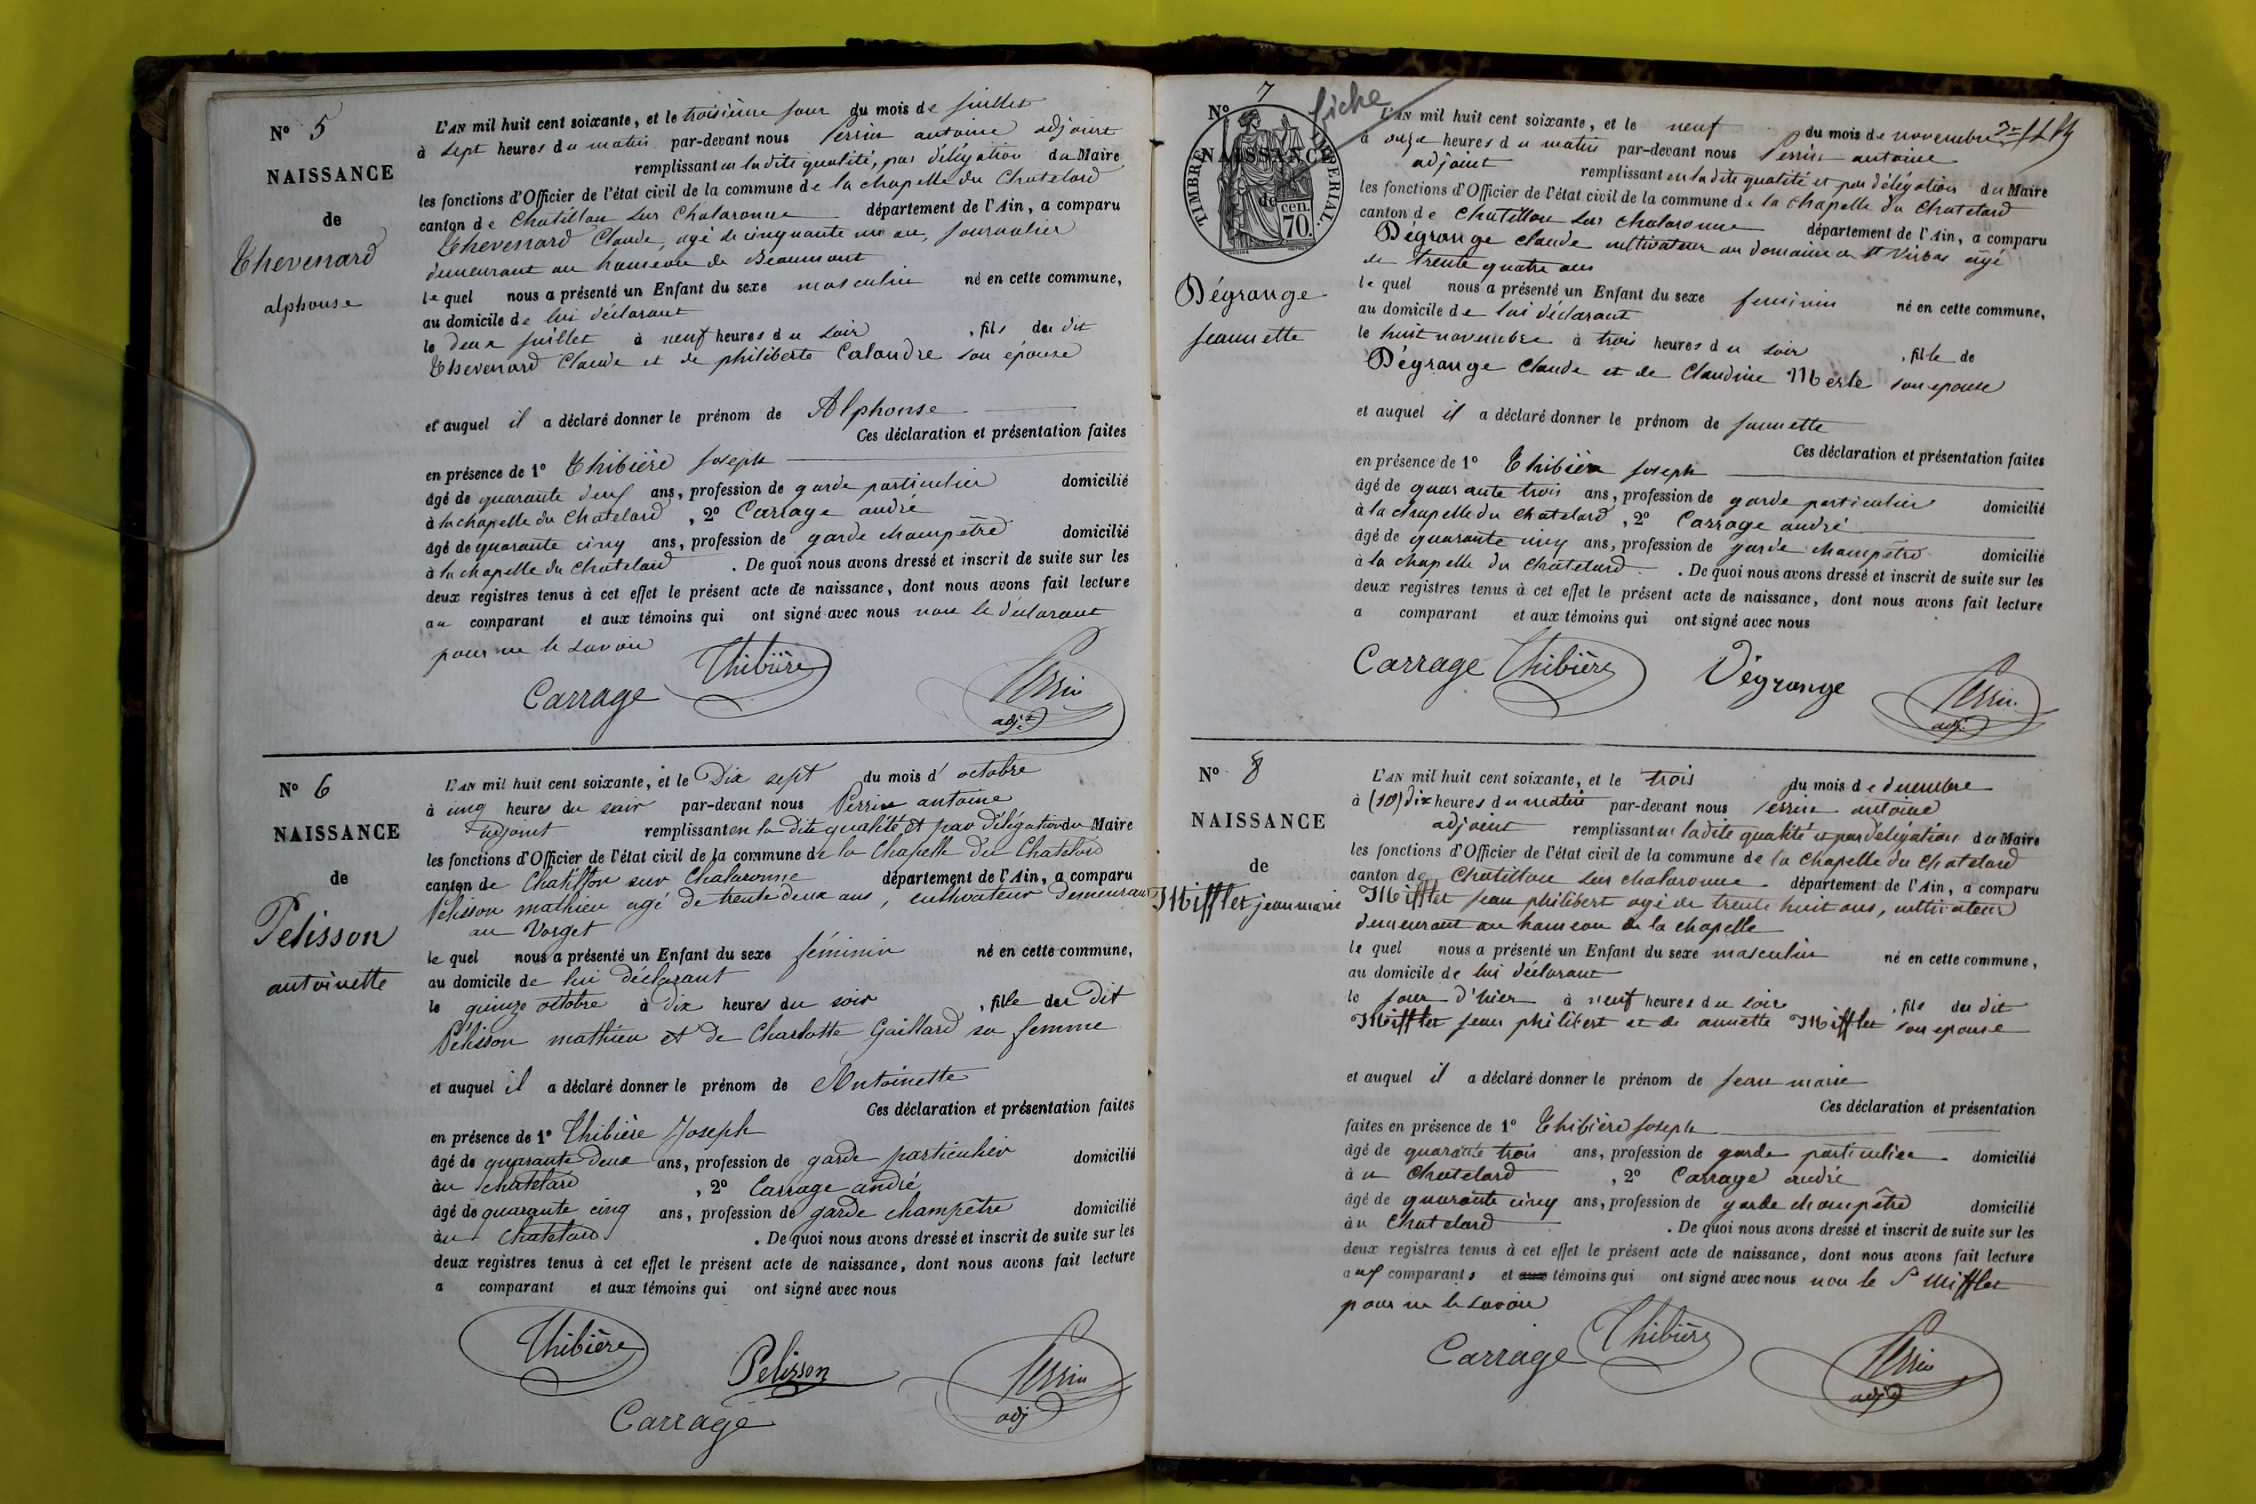 N° 5
NAISSANCE
de
Thevenard
alphonse
L'AN mil huit cent soixante, et le troisième jour du mois de juillet
à sept heures du matin par-devant nous Perrin antoine adjoint
remplissant en la dite qualité, par délégation du Maire
les fonctions d'Officier de l'état civil de la commune de la chapelle du Chatelard
canton de Chatillon sur Chalaronne département de l'Ain, a comparu
Thevenard Claude, agé de cinquante un an, journalier
demeurant au hameau de Beaumont
le quel nous a présenté un Enfant du sexe masculin né en cette commune,
au domicile de lui déclarant
le deux juillet à neuf heures du soir, fils du dit
Thevenard Claude et de philiberte Calandre son épouse
et auquel il a déclaré donner le prénom de Alphonse
Ces déclaration et présentation faites
en présence de 1° Thibière joseph
âgé de quarante deux ans, profession de garde particulier domicilié
à la chapelle du Chatelard, 2° Carrage andré
âgé de quarante cinq ans, profession de garde champêtre domicilié
à la chapelle du Chatelard. De quoi nous avons dressé et inscrit de suite sur les
deux registres tenus à cet effet le présent acte de naissance, dont nous avons fait lecture
au comparant et aux témoins qui ont signé avec nous non le déclarant
pour ne le savoir
Thibière
Carrage
Perrin
adjt
N° 6
NAISSANCE
de
Pelisson
antoinette
L'AN mil huit cent soixante, et le Dix sept du mois d' octobre
à cinq heures du soir par-devant nous Perrin antoine
adjoint remplissant en la dite qualité et par délégation du Maire
les fonctions d'Officier de l'état civil de la commune de la Chapelle du Chatelard
canton de Chatillon sur Chalaronne département de l'Ain, a comparu
Pélisson mathieu agé de trente deux ans, cultivateur demeurant
au Vorget
le quel nous a présenté un Enfant du sexe féminin né en cette commune,
au domicile de lui déclarant
le quinze octobre à dix heures du soir, fille du dit
Pélisson mathieu et de Charlotte Gaillard sa femme
et auquel il a déclaré donner le prénom de Antoinette
Ces déclaration et présentation faites
en présence de 1° Thibière Joseph
âgé de quarante deux ans, profession de garde particulier domicilié
àu chatelard, 2° Carrage andré
âgé de quarante cinq ans, profession de garde champêtre domicilié
àu Chatelard. De quoi nous avons dressé et inscrit de suite sur les
deux registres tenus à cet effet le présent acte de naissance, dont nous avons fait lecture
a comparant et aux témoins qui ont signé avec nous
Thibière
Pelisson
Perrin
adj
Carrage
N° 7
fiche
TIMBRE IMPERIAL
70 cen.
NAISSANCE
de
Dégrange
jeannette
L'AN mil huit cent soixante, et le neuf du mois de novembre
à onze heures du matin par-devant nous Perrin antoine
adjoint remplissant en la dite qualité et par délégation du Maire
les fonctions d'Officier de l'état civil de la commune de la chapelle du Chatelard
canton de Chatillon sur chalaronne département de l'Ain, a comparu
Dégrange claude cultivateur au domaine de St Virbas agé
de trente quatre ans
le quel nous a présenté un Enfant du sexe feminin né en cette commune,
au domicile de lui déclarant
le huit novembre à trois heures du soir, fille de
Dégrange claude et de Claudine Merle son epouse
et auquel il a déclaré donner le prénom de jannette
Ces déclaration et présentation faites
en présence de 1° Thibière joseph
âgé de quarante trois ans, profession de garde particulier domicilié
à la chapelle du chatelard, 2° Carrage andré
âgé de quarante cinq ans, profession de garde champêtre domicilié
à la chapelle du Chatelard. De quoi nous avons dressé et inscrit de suite sur les
deux registres tenus à cet effet le présent acte de naissance, dont nous avons fait lecture
a comparant et aux témoins qui ont signé avec nous
Carrage Thibière Dégrange Perrin
adj.
N° 8
NAISSANCE
de
Mifflet jean marie
L'AN mil huit cent soixante, et le trois du mois de decembre
à (10) dix heures du matin par-devant nous Perrin antoine
adjoint remplissant en la dite qualité et par délégation du Maire
les fonctions d'Officier de l'état civil de la commune de la chapelle du chatelard
canton de Chatillon sur chalaronne département de l'Ain, a comparu
Mifflet jean philibert agé de trente huit ans, cultivateur
demeurant au hameau de la chapelle
le quel nous a présenté un Enfant du sexe masculin né en cette commune,
au domicile de lui déclarant
le jour d'hier à neuf heures du soir, fils du dit
Mifflet jean philibert et de annette Mifflet son epouse
et auquel il a déclaré donner le prénom de jean marie
Ces déclaration et présentation
faites en présence de 1° Thibière joseph
âgé de quarante trois ans, profession de garde particulier domicilié
àu Chatelard, 2° Carrage andré
âgé de quarante cinq ans, profession de garde champêtre domicilié
àu Chatelard. De quoi nous avons dressé et inscrit de suite sur les
deux registres tenus à cet effet le présent acte de naissance, dont nous avons fait lecture
aux comparants et aux témoins qui ont signé avec nous non le Sr Mifflet
pour ne le savoir
Carrage Thibière Perrin
adjt